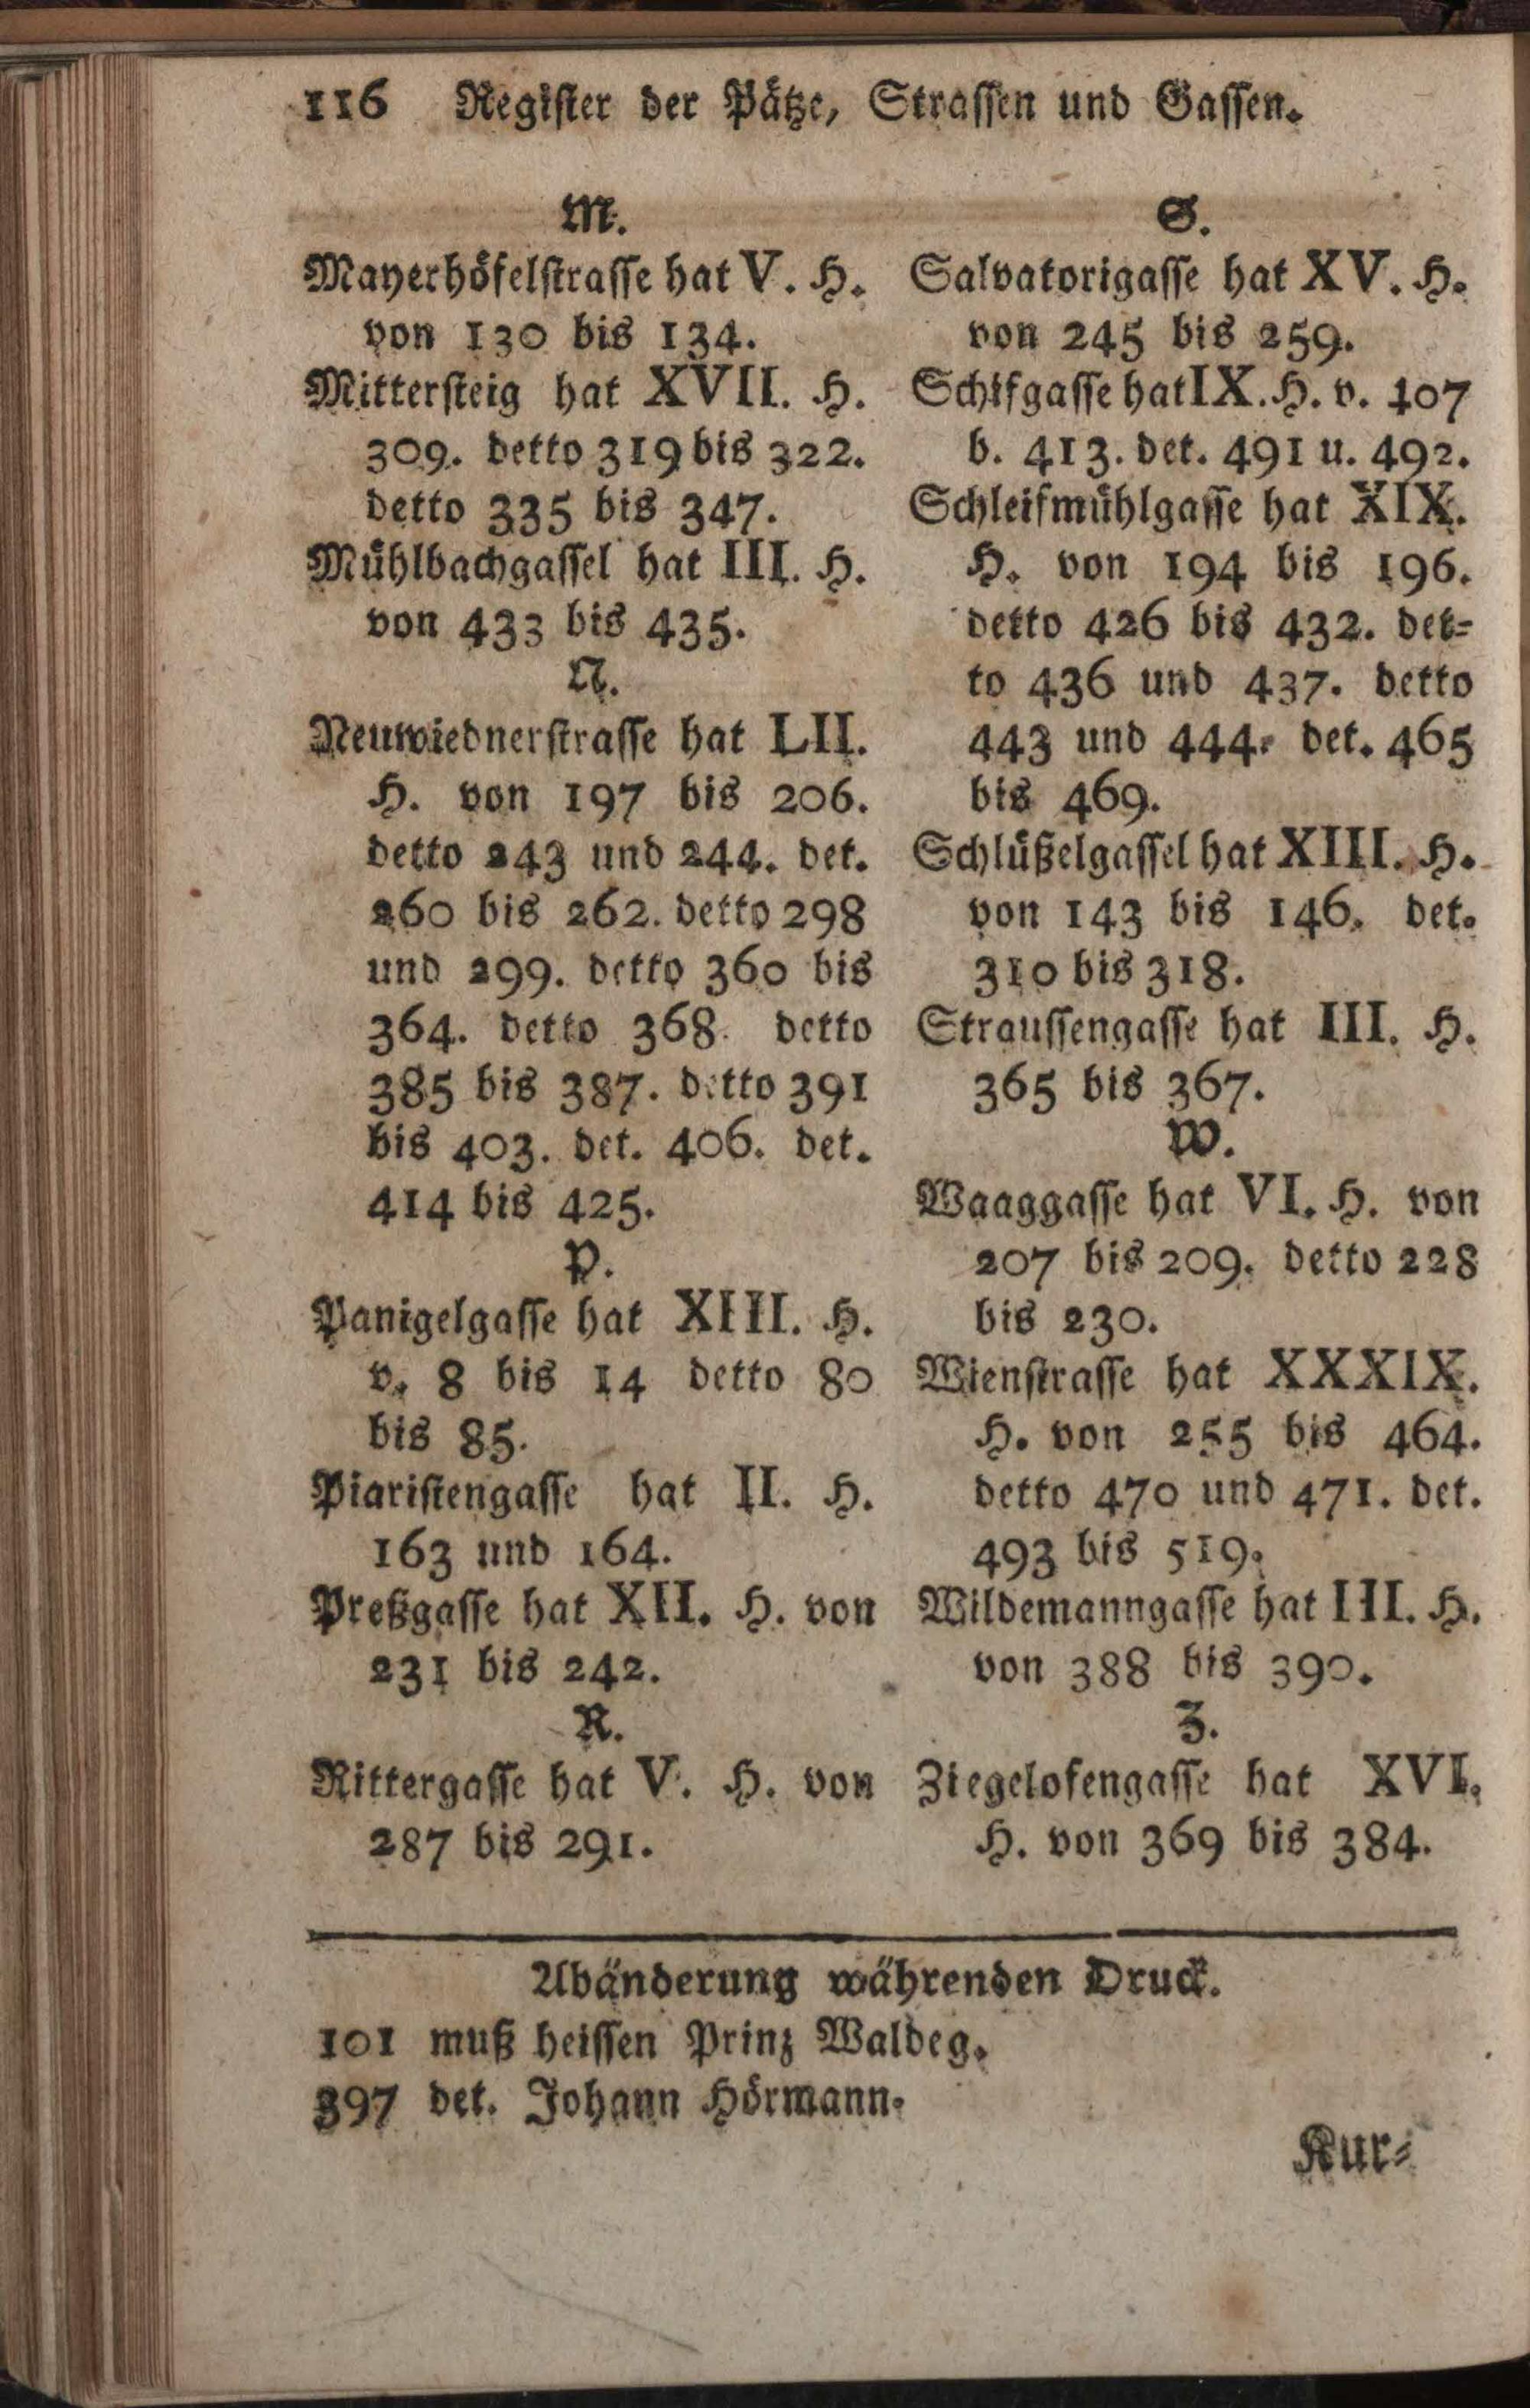 116 Register der Pätze, Strassen und Gassen.
M.
Mayerhöfelstrasse hat V. H.
von 130 bis 134.
Mittersteig hat XVII. H.
309. detto 319 bis 322.
detto 335 bis 347.
Mühlbachgassel hat III. H.
von 433 bis 435.
N.
Neuwiednerstrasse hat LII.
H. von 197 bis 206.
detto 243 und 244. det.
260 bis 262. detto 298
und 299. detto 360 bis
364. detto 368. detto
385 bis 387. detto 391
bis 403. det. 406. det.
414 bis 425.
P.
Panigelgasse hat XIII. H.
v. 8 bis 14 detto 80
bis 85.
Piaristengasse hat II. H.
163 und 164.
Preßgasse hat XII. H. von
231 bis 242.
R.
Rittergasse hat V. H. von
287 bis 291.
S.
Salvatorigasse hat XV. H.
von 245 bis 259.
Schifgasse hat IX. H. v. 407
b. 413. det. 491 u. 492.
Schleifmühlgasse hat XIX.
H. von 194 bis 196.
detto 426 bis 432. det-
to 436 und 437. detto
443 und 444. det. 465
bis 469.
Schlüßelgassel hat XIII. H.
von 143 bis 146. det.
310 bis 318.
Straussengasse hat III. H.
365 bis 367.
W.
Waaggasse hat VI. H. von
207 bis 209. detto 228
bis 230.
Wienstrasse hat XXXIX.
H. von 255 bis 464.
detto 470 und 471. det.
493 bis 519.
Wildemanngasse hat III. H.
von 388 bis 390.
Z.
Ziegelofengasse hat XVI.
H. von 369 bis 384.
Abänderung währenden Druck.
101 muß heissen Prinz Waldeg.
397 det. Johann Hörmann.
Kur-